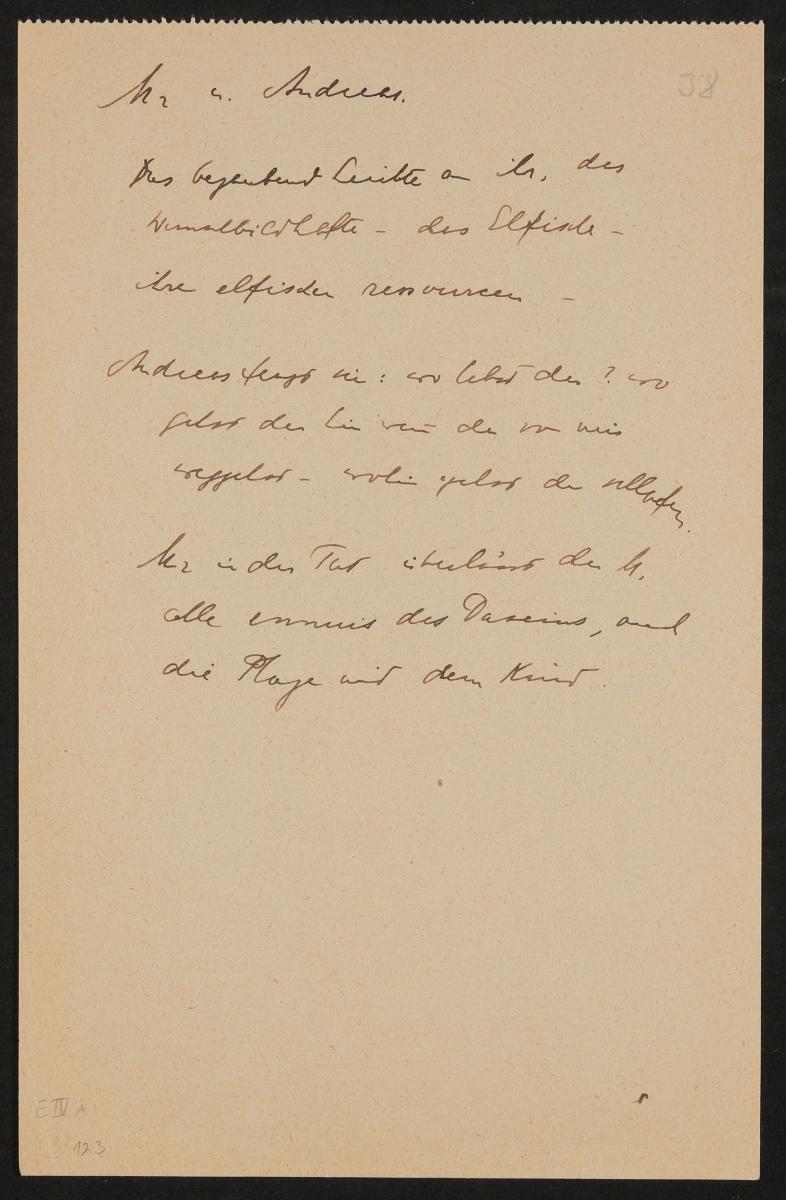 M2 u. Andreas.
38
Das bezaubernd Leichte an ihr, das
Wandbildhafte – das Elfische –
ihre elfischen ressourcen –
Andreas fragt sie: wo lebst du? wo
gehst du hin wenn du von mir
weggehst – wohin gehst du schlafen.
M2 in der Tat überlässt der M1
alle ennuis des Daseins, auch
die Plage mit dem Kind.
E IV A
123